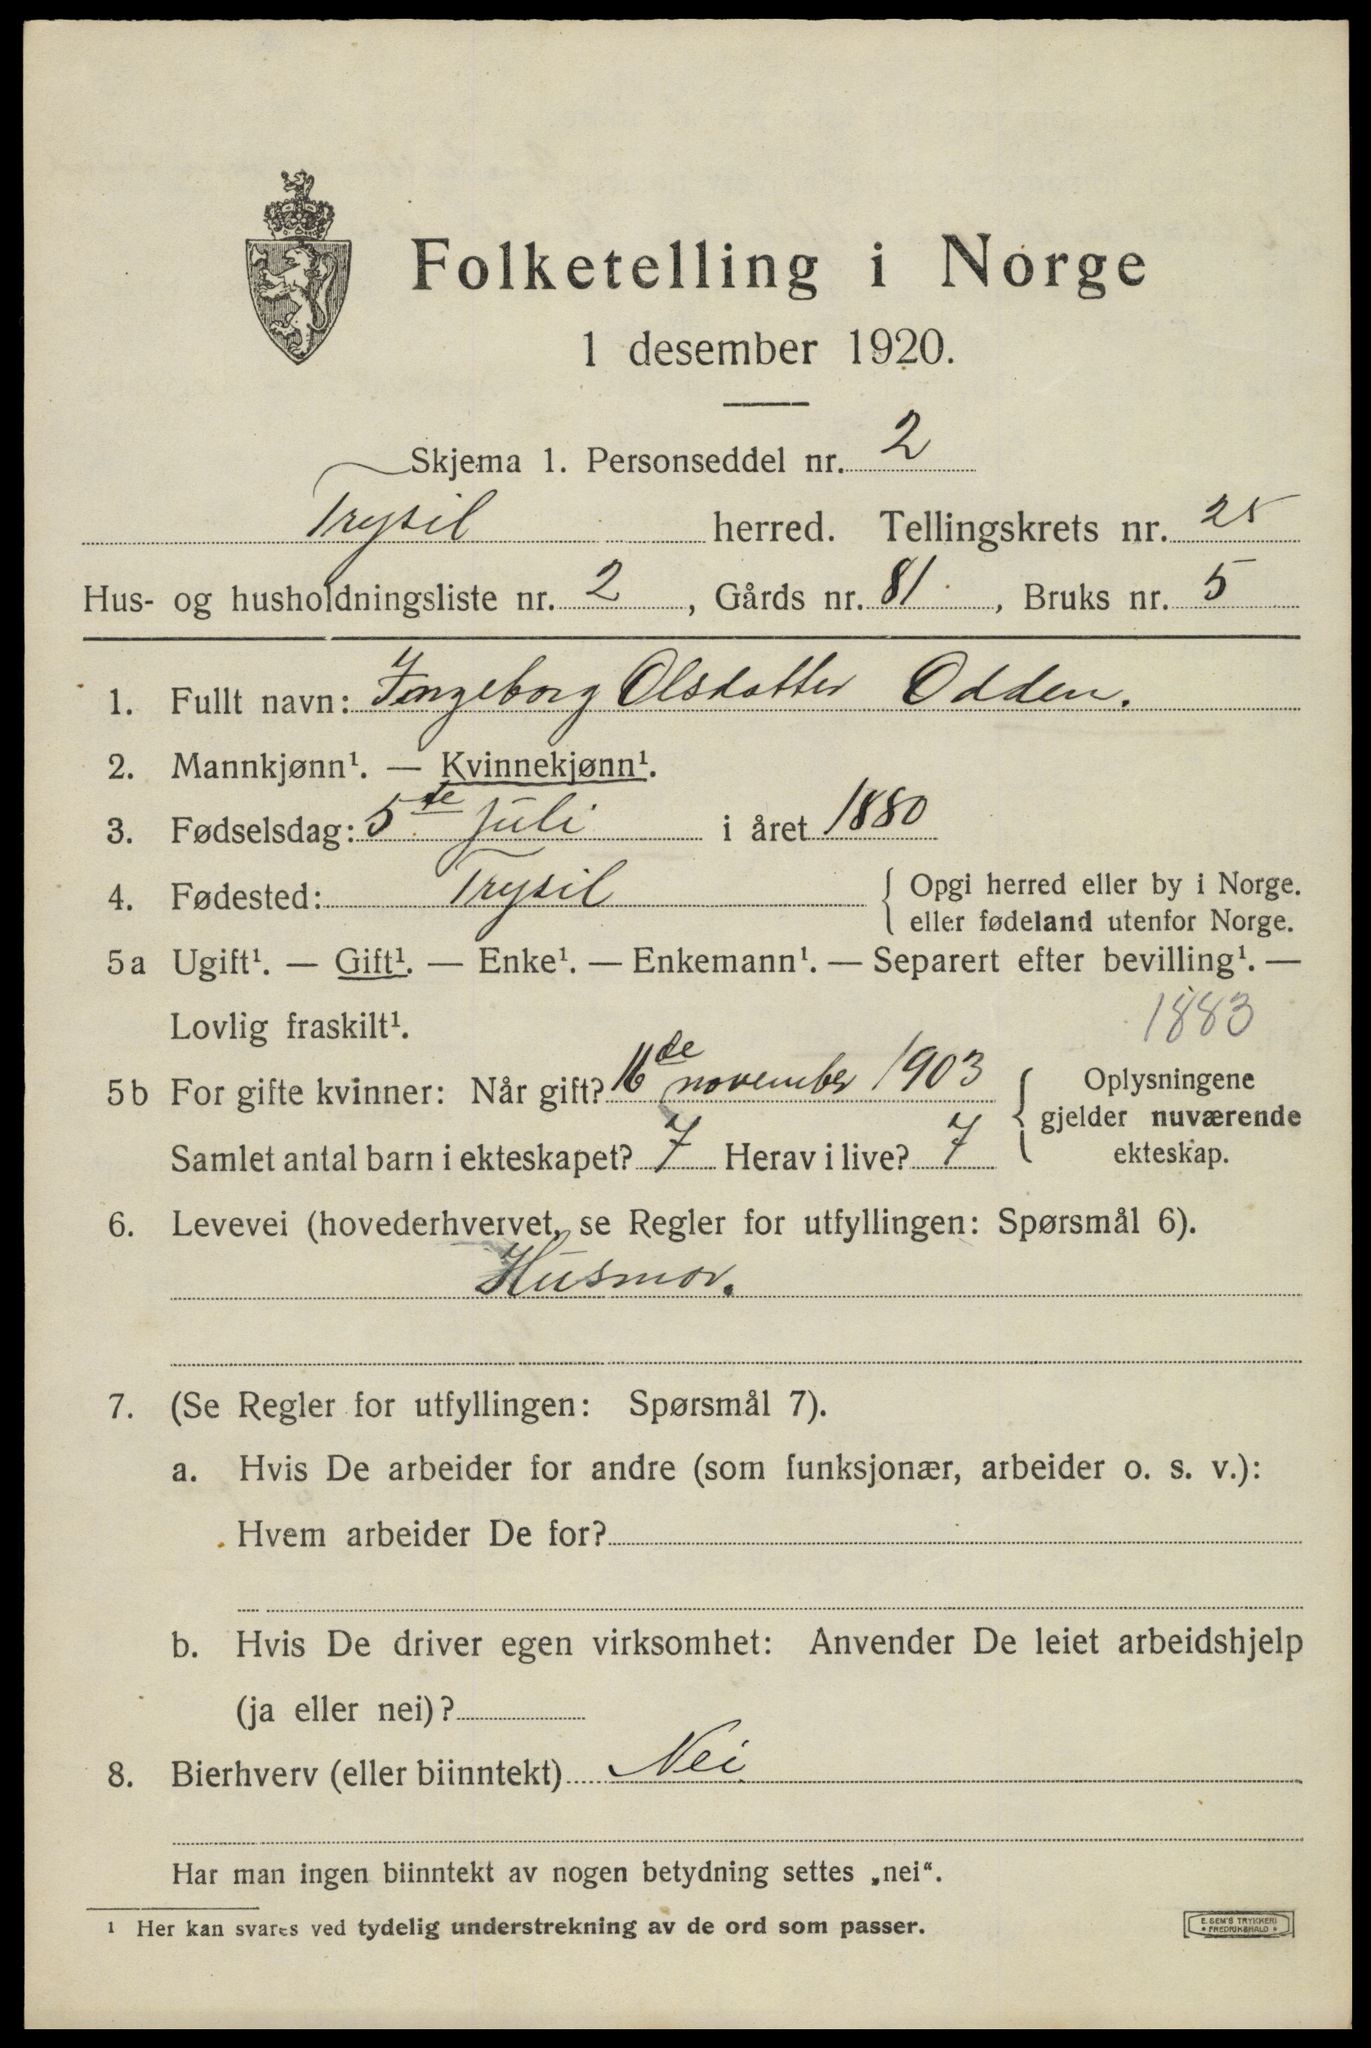 Folketelling i Norge
1 desember 1920.
Skjema 1. Personseddel nr. 2
Trysil herred. Tellingskrets nr. 25
Hus- og husholdningsliste nr. 2, Gårds nr. 81, Bruks nr. 5
1. Fullt navn: Ingeborg Olsdatter Odden.
2. Mannkjønn¹. — Kvinnekjønn¹.
3. Fødselsdag: 5te juli i året 1880
4. Fødested: Trysil { Opgi herred eller by i Norge.
eller fødeland utenfor Norge.
5a Ugift¹. — Gift¹. — Enke¹. — Enkemann¹. — Separert efter bevilling¹. —
Lovlig fraskilt¹. 1883
5b For gifte kvinner: Når gift? 16de november 1903 { Oplysningene
gjelder nuværende
Samlet antal barn i ekteskapet? 7 Herav i live? 7 ekteskap.
6. Levevei (hovederhvervet, se Regler for utfyllingen: Spørsmål 6).
Husmor.
7. (Se Regler for utfyllingen: Spørsmål 7).
a. Hvis De arbeider for andre (som funksjonær, arbeider o. s. v.):
Hvem arbeider De for?
b. Hvis De driver egen virksomhet: Anvender De leiet arbeidshjelp
(ja eller nei)?
8. Bierhverv (eller biinntekt) Nei
Har man ingen biinntekt av nogen betydning settes „nei“.
¹ Her kan svares ved tydelig understrekning av de ord som passer.
E. SEM'S TRYKKERI
* FREDRIKSHALD *